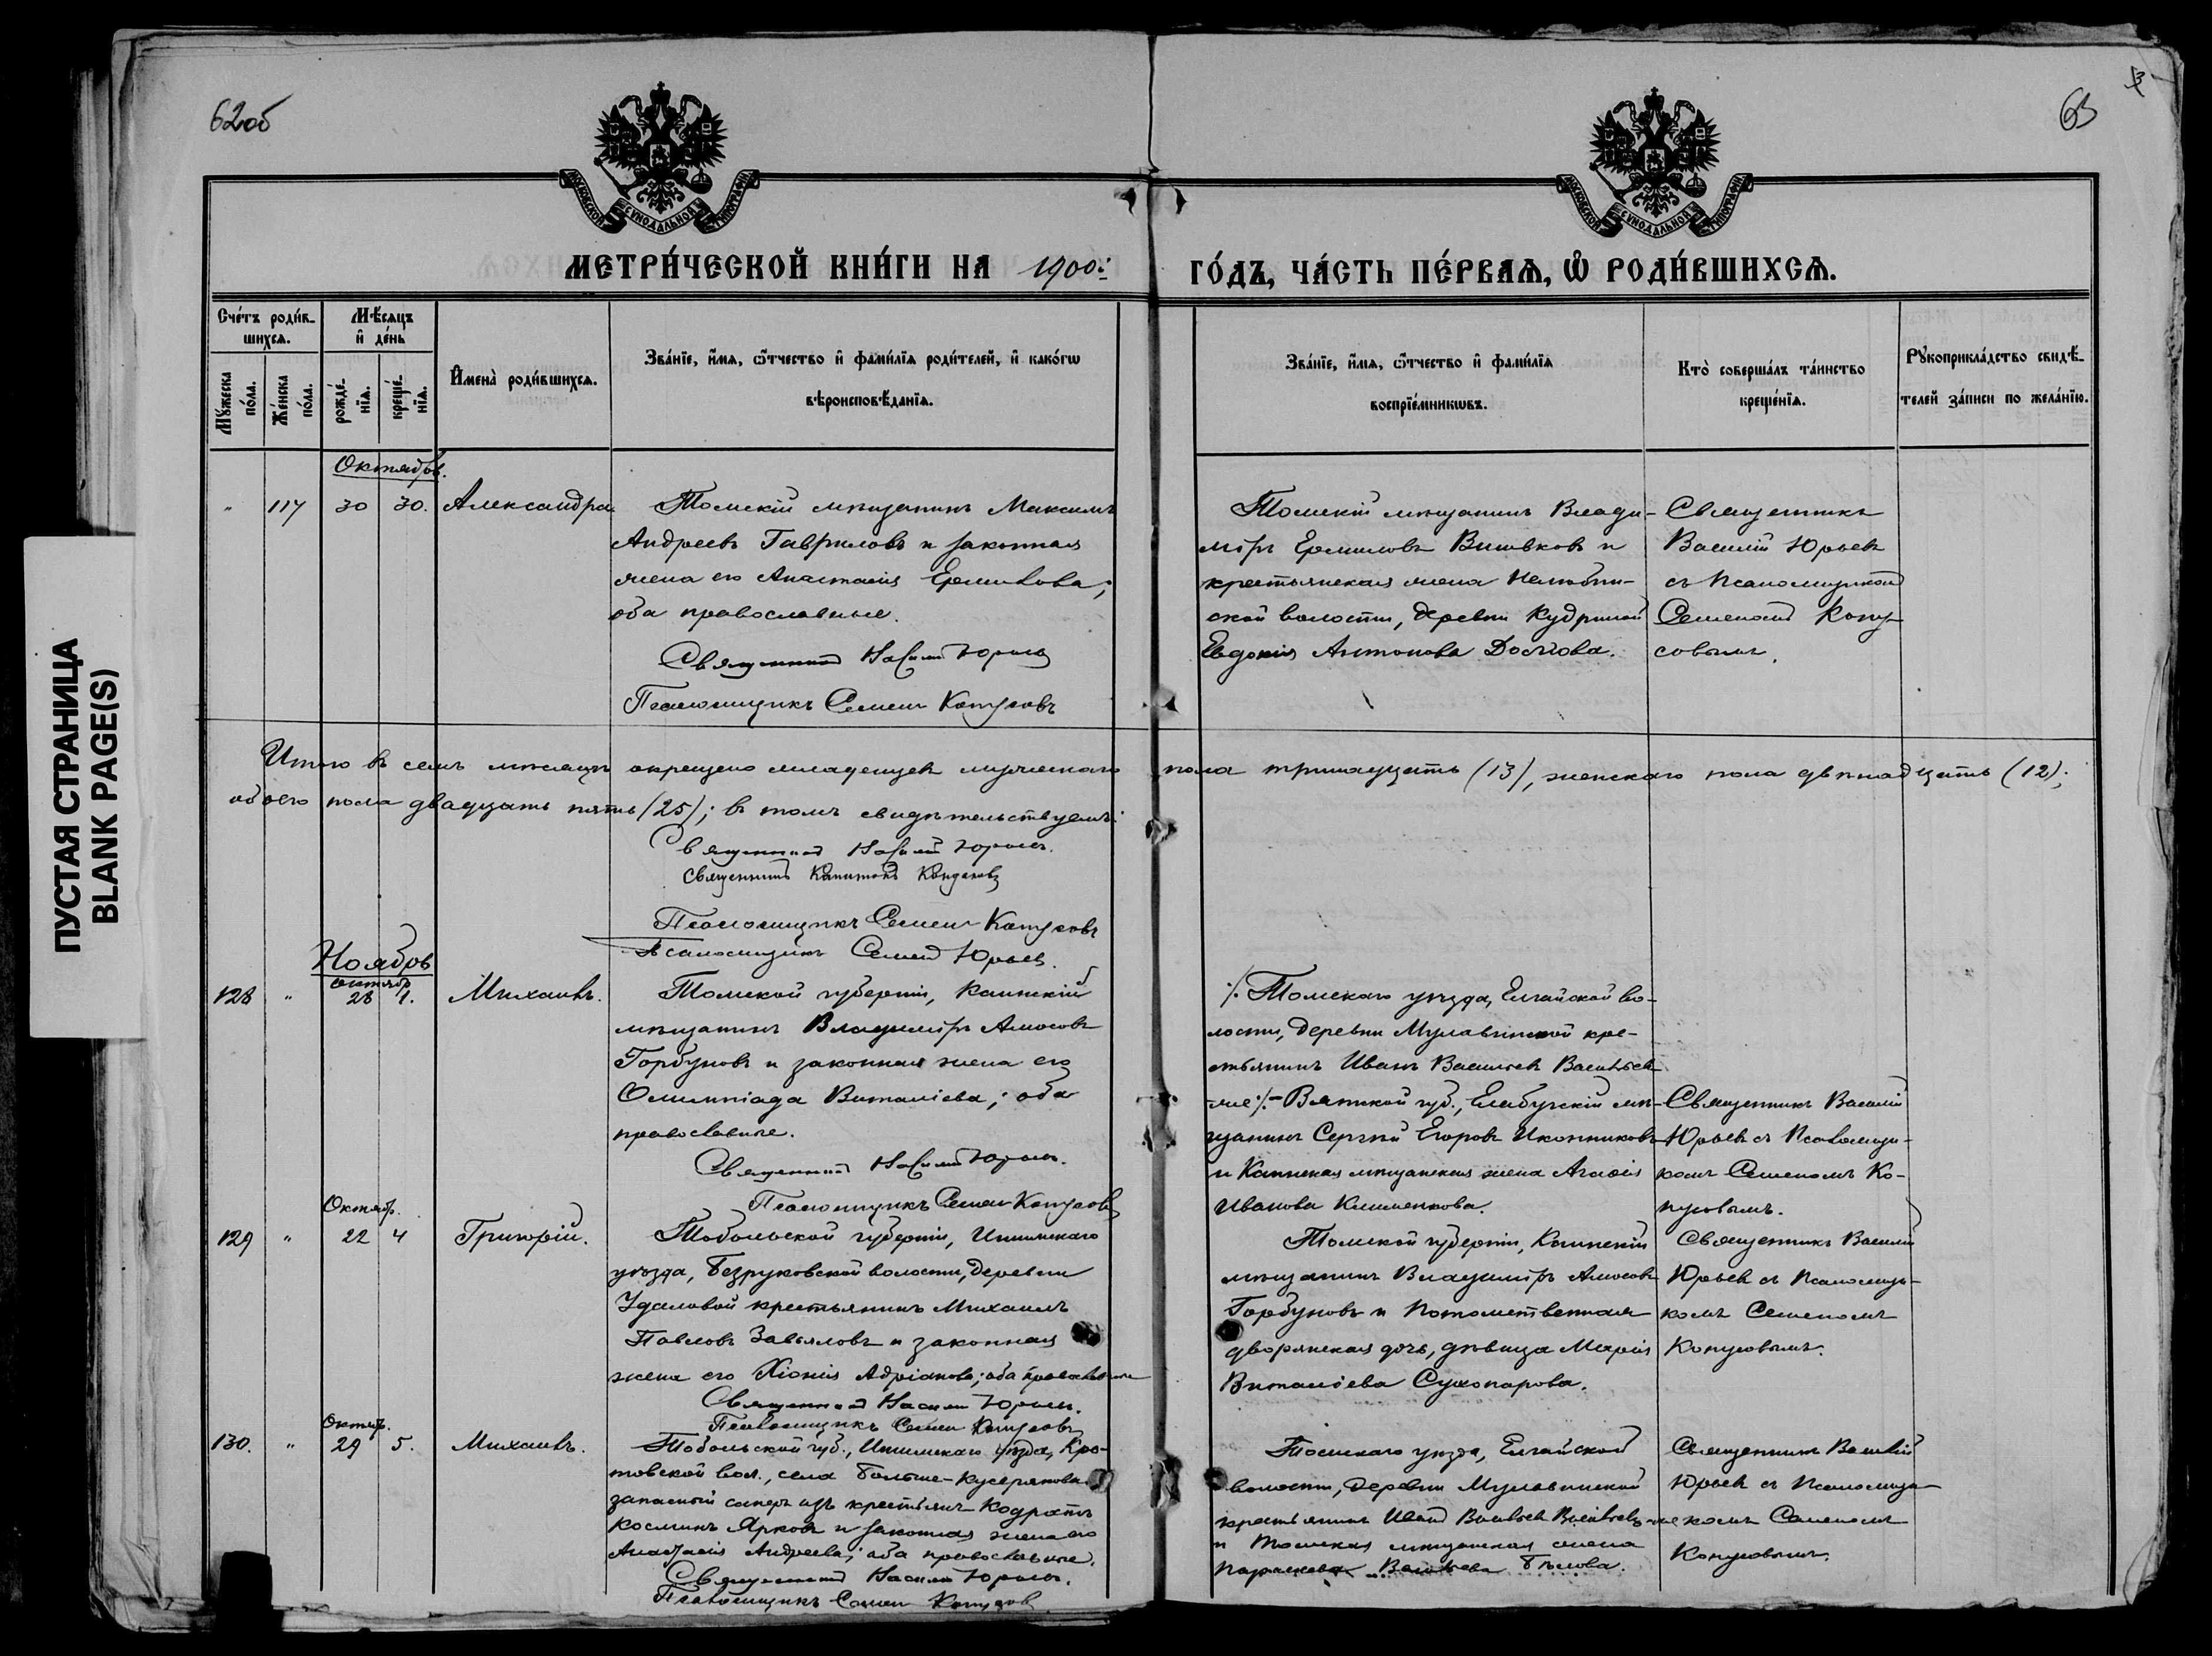 62об
63
ПУСТАЯ СТРАНИЦА
BLANK PAGE(S)
МОСКОВСКОЙ СѴНОДАЛЬНОЙ ТИПОГРАФІИ
МОСКОВСКОЙ СѴНОДАЛЬНОЙ ТИПОГРАФІИ
МЕТРИ́ЧЕСКОЙ КНИ́ГИ НА 1900:
ГО́ДЪ, ЧА́СТЬ ПЕ́РВАѦ, Ѽ РОДИ́ВШИХСѦ.
Сче́тъ роди́в-
шихсѧ.
Мѣ́сѧцъ
и҆ де́нь
Мꙋ́жеска по́ла.
Же́нска по́ла.
рожде́-нїѧ.
креще́-нїѧ.
И҆мена̀ роди́вшихсѧ.
Зва́нїе, и҆́мѧ, ѻ҆́тчество и҆ фами́лїѧ роди́телей, и҆ како́гѡ
вѣроисповѣ́данїѧ.
Зва́нїе, и҆́мѧ, ѻ҆́тчество и҆ фами́лїѧ
воспрїе́мникѡвъ.
Кто̀ соверша́лъ та́инство
креще́нїѧ.
Рꙋкоприкла́дство свидѣ́-
телей за́писи по жела́нїю.
Октябрь.
" 117 30 30. Александра.
Томскій мѣщанинъ Максимъ
Андреевъ Гавриловъ и законная
жена его Анастасія Ермилова;
оба православные.
Священникъ Василій Юрьевъ
Псаломщикъ Семенъ Копусовъ
Томскій мѣщанинъ Влади-
міръ Ермиловъ Вишвковъ и
крестьянская жена Нелюбин-
ской волости, деревни Кудриной
Евдокія Антонова
Священникъ
Василій Юрьевъ
съ псаломщикомъ
Семеномъ Копу-
совымъ.
Итого въ семъ мѣсяцѣ окрещено младенцевъ мужескаго пола тринадцать (13), женскаго пола двѣнадцать (12);
обоего пола двадцать пять (25); въ томъ свидѣтельствуемъ:
Священникъ Василій Юрьевъ.
Священникъ Капитонъ Кондаковъ
Псаломщикъ Семенъ Копусовъ
Псаломщикъ Семенъ Юрьевъ.
Ноябрь
октябр
128 " 28 1. Михаилъ.
Томской губерніи, Каинскій
мѣщанинъ Владиміръ Амосовъ
Горбуновъ и законная жена его
Олимпіада Виталіева; оба
православные.
Священникъ Василій Юрьевъ.
Псаломщикъ Семенъ Копусовъ
⁒ Томскаго уѣзда, Елгайской во-
лости, деревни Мулавинской кре-
стьянинъ Иванъ Васильевъ Васильев-
⁒ - Вятской губ., Елабужскій мѣ-
щанинъ Сергѣй Егоровъ Иконниковъ
и Каинская мѣщанская жена Агафія
Иванова Клименкова.
Священникъ Василій
Юрьевъ съ псаломщи-
комъ Семеномъ Ко-
пусовымъ.
Октябр.
129 " 22 4 Григорій.
Тобольской губерніи, Ишимскаго
уѣзда, Безруковской волости, деревни
Удаловой крестьянинъ Михаилъ
Павловъ Завьяловъ и законная
жена его Хіонія Адріанова; оба православные
Священникъ Василій Юрьевъ.
Псаломщикъ Семенъ Копусовъ
Томской губерніи, Каинскій
мѣщанинъ Владиміръ Амосовъ
Горбуновъ и потомственная
дворянская дочь, дѣвица Марія
Виталіева Сухопарова.
Священникъ Василій
Юрьевъ съ псаломщи-
комъ Семеномъ
Копусовымъ.
Октяб.
130. " 29 5. Михаилъ.
Тобольской губ., Ишимскаго уѣзда, Кро-
товской вол., села Больше-Кусерякова
запасный саперъ изъ крестьянъ Кодратъ
Косминъ Ярковъ и законная жена его
Анастасія Андреева; оба православные.
Священникъ Василій Юрьевъ.
Псаломщикъ Семенъ Копусовъ
Томскаго уѣзда, Елгайской
волости, деревни Мулавинской
крестьянинъ Иванъ Васильевъ Васильевъ
и Томская мѣщанская жена
Параскева Васильева Бѣлова.
Священникъ Василій
Юрьевъ съ псаломщи-
комъ Семеномъ
Копусовымъ.